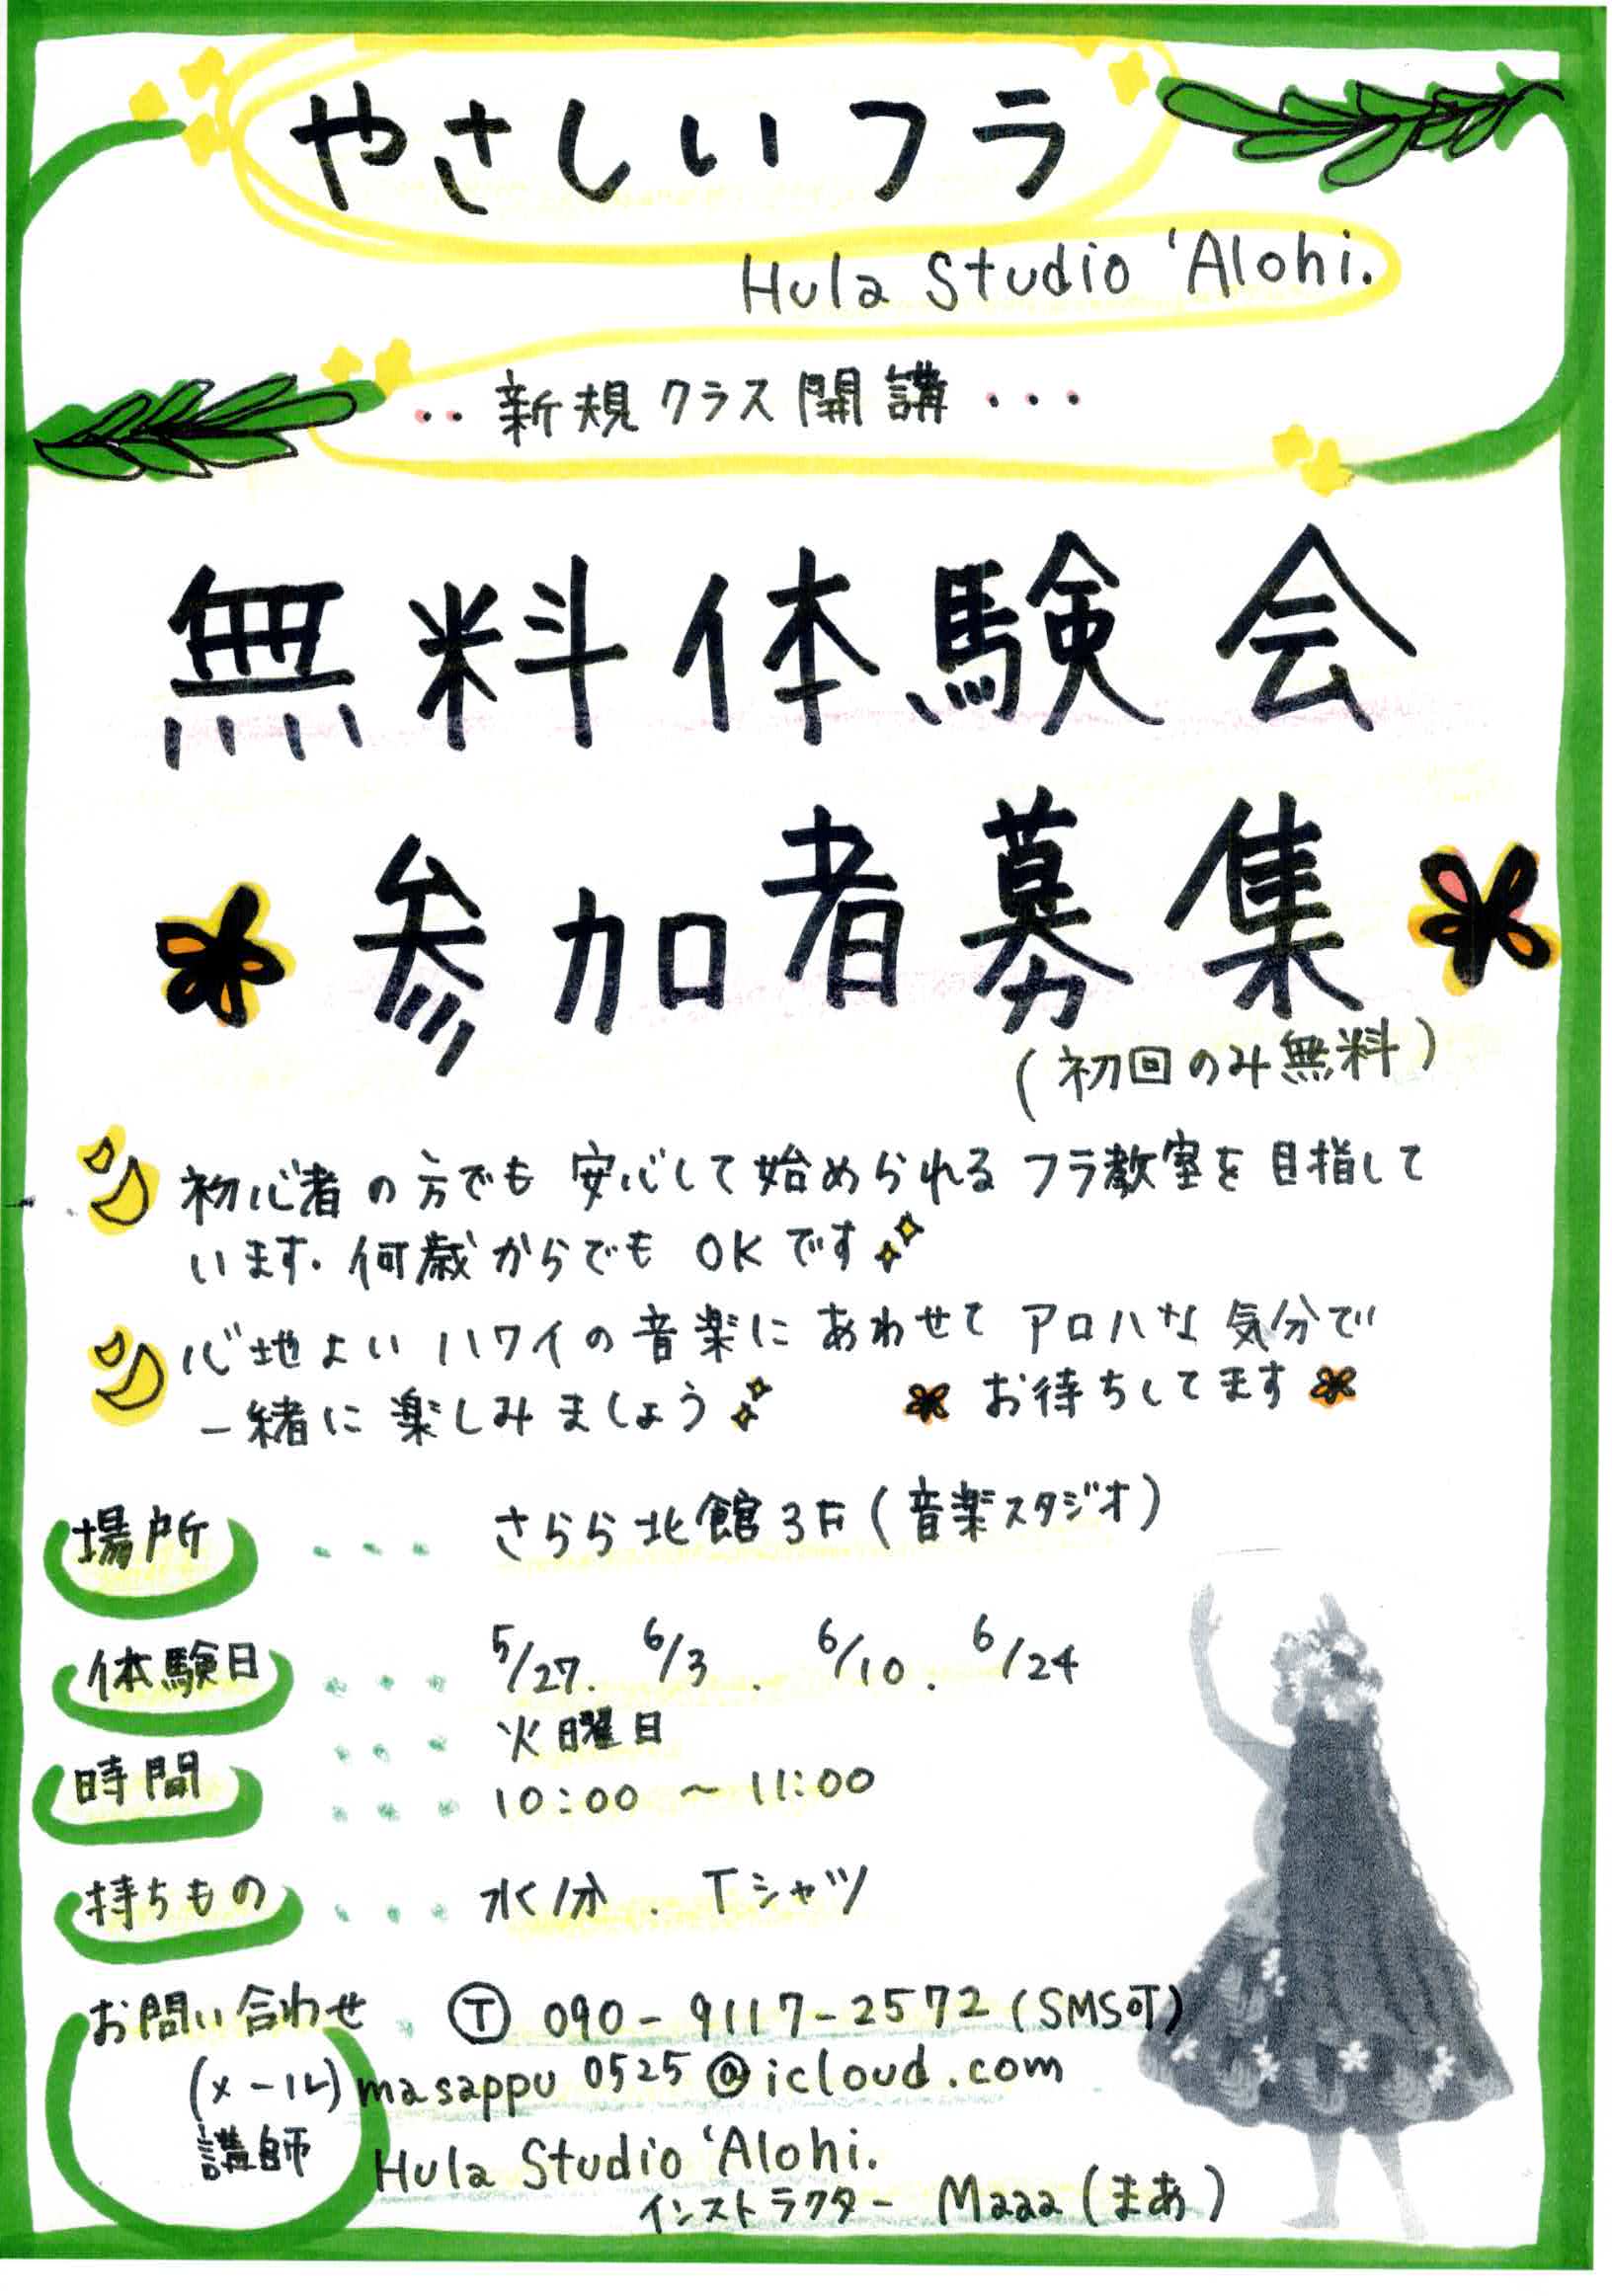 やさしいフラ
Hula Studio 'Alohi.
‥新規クラス開講…
無料体験会
参加者募集
(初回のみ無料)
初心者の方でも安心して始められるフラ教室を目指して
います.何歳からでもOKです
心地よいハワイの音楽にあわせてアロハな気分で
一緒に楽しみましょう お待ちしてます
場所 ・・・ さらら北館3F(音楽スタジオ)
体験日 ・・・ 5/27. 6/3. 6/10. 6/24
・・・ 火曜日
時間 ・・・ 10:00 ~ 11:00
持ちもの ・・・ 水分. Tシャツ
お問い合わせ ・ Ⓣ 090-9117-2572(SMS可)
(メール)masappu0525@icloud.com
講師 Hula Studio 'Alohi.
インストラクター Maaa(まあ)